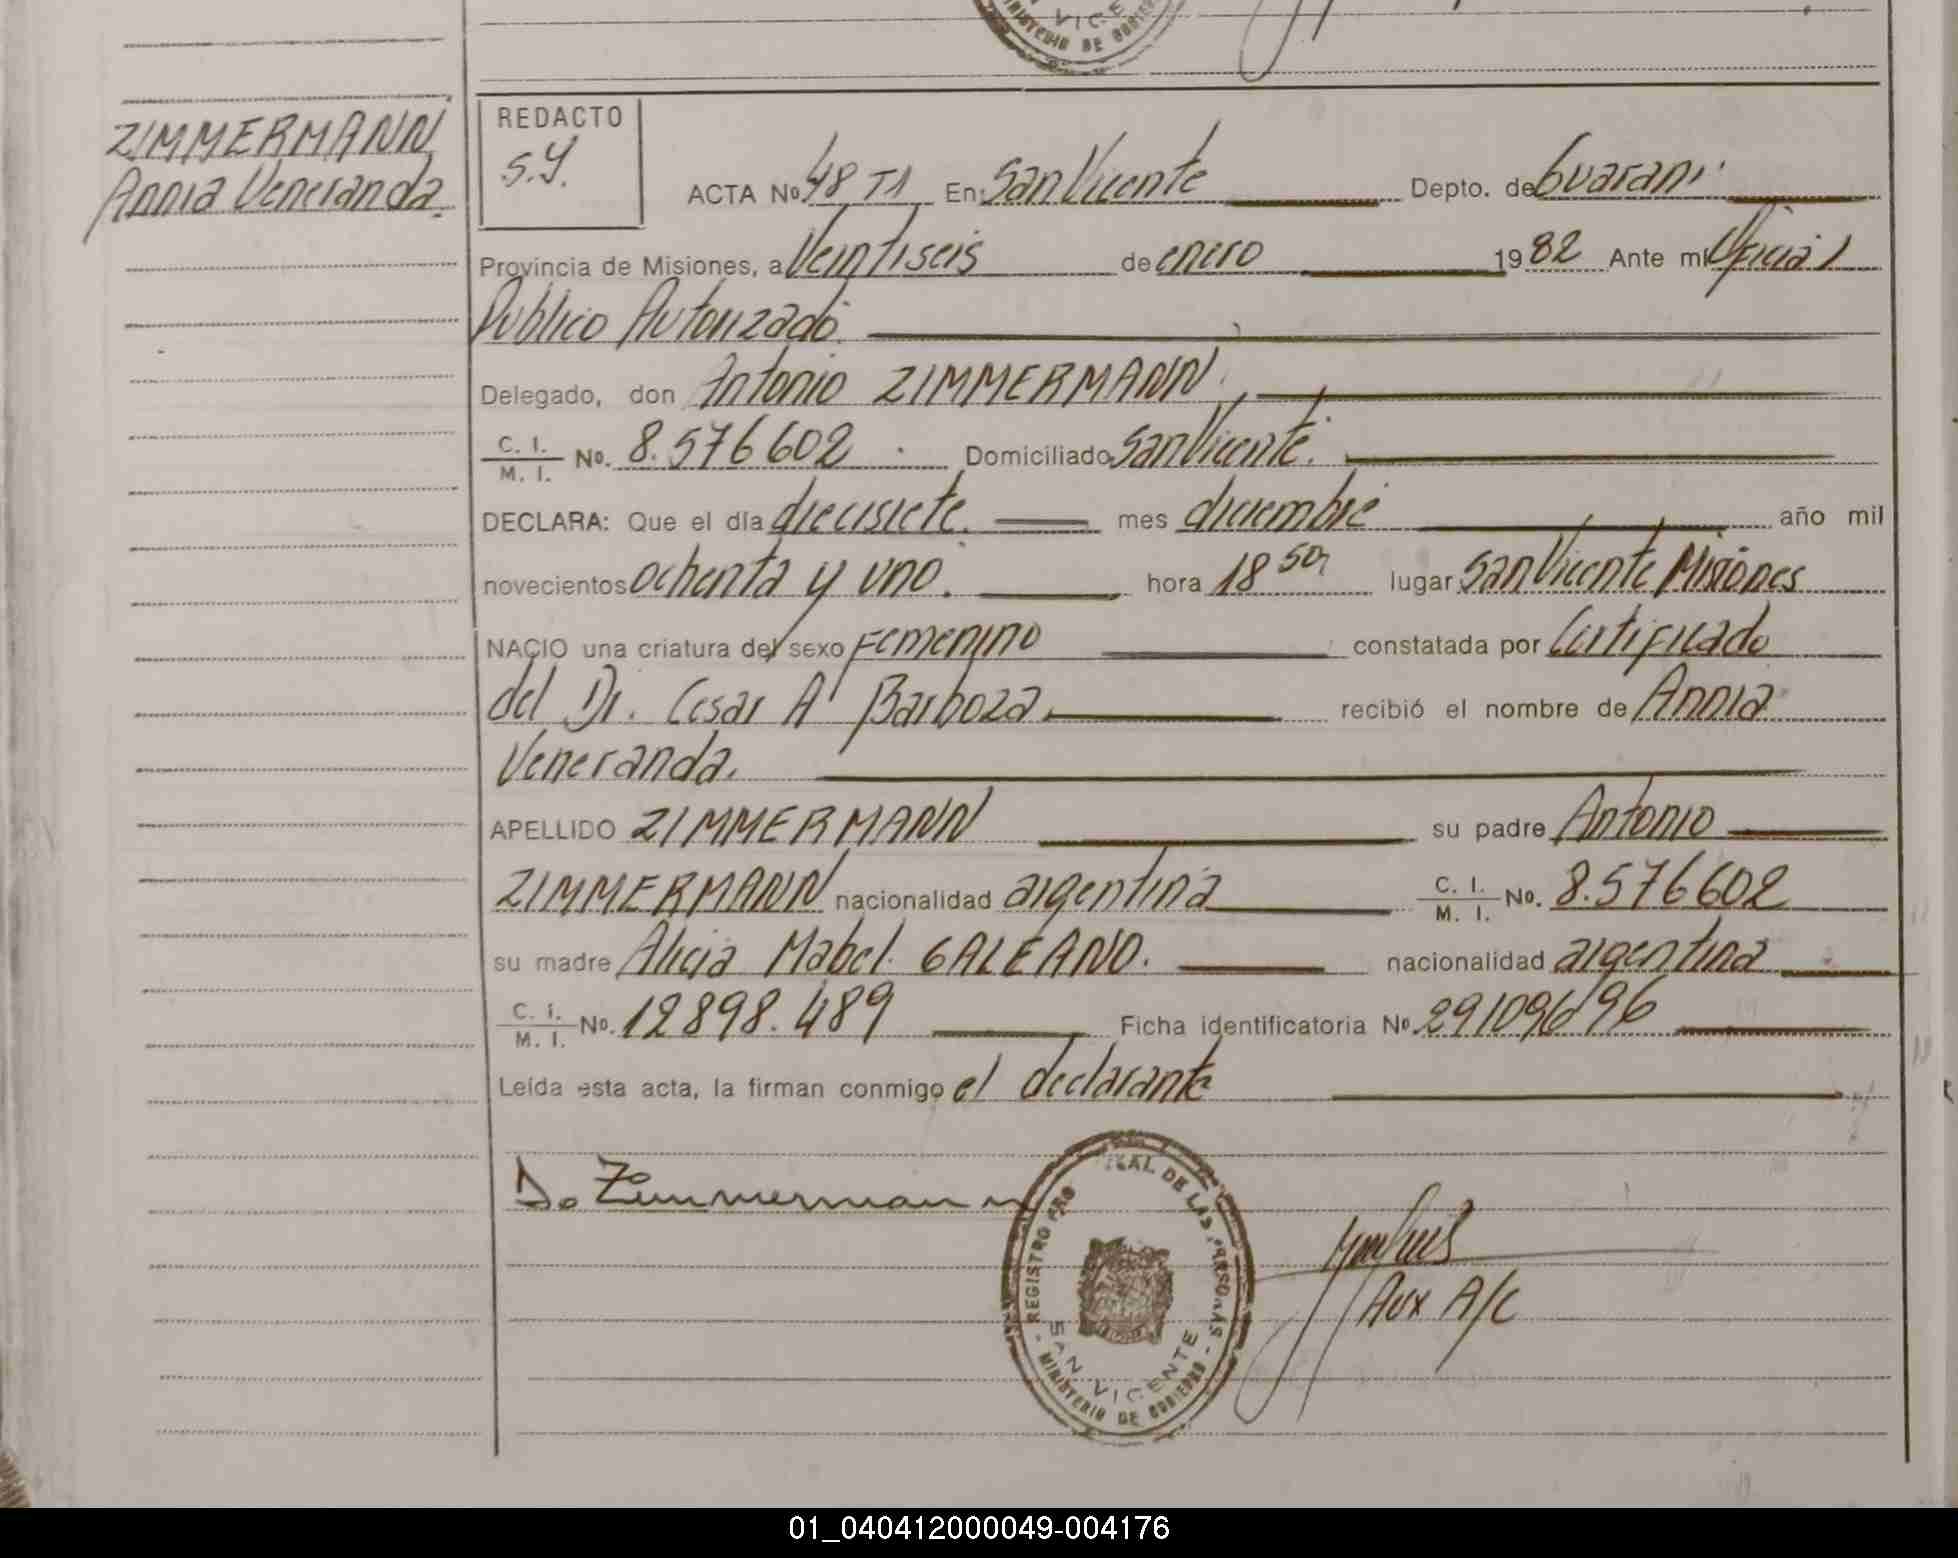 VICE
MINISTERIO DE GOBIERNO
ZIMMERMANN
Annia Veneranda.
REDACTO
S.Y.
ACTA No 48 T1 En: San Vicente Depto. de Guaraní
Provincia de Misiones, a Veintiseis de enero 1982 Ante mí Oficial
Publico Autorizado.
Delegado, don Antonio ZIMMERMANN.
C. I. / M. I. No. 8.576602 Domiciliado San Vicente.
DECLARA: Que el día diecisiete. mes diciembre año mil
novecientos ochenta y uno. hora 18 50 lugar San Vicente Misiones
NACIO una criatura del sexo Femenino constatada por Certificado
del Dr. Cesar A Barboza recibió el nombre de Annia
Veneranda.
APELLIDO ZIMMERMANN su padre Antonio
ZIMMERMANN nacionalidad argentina C. I. / M. I. No. 8.576602
su madre Alicia Mabel GALEANO. nacionalidad argentina
C. I. / M. I. No. 12898.489 Ficha identificatoria No.
Leída esta acta, la firman conmigo el declarante
Zimmermann
REGISTRO PRO ICAL DE LAS PERSONAS
SAN VICENTE
MINISTERIO DE GOBIERNO
Aux A/C
01_040412000049-004176